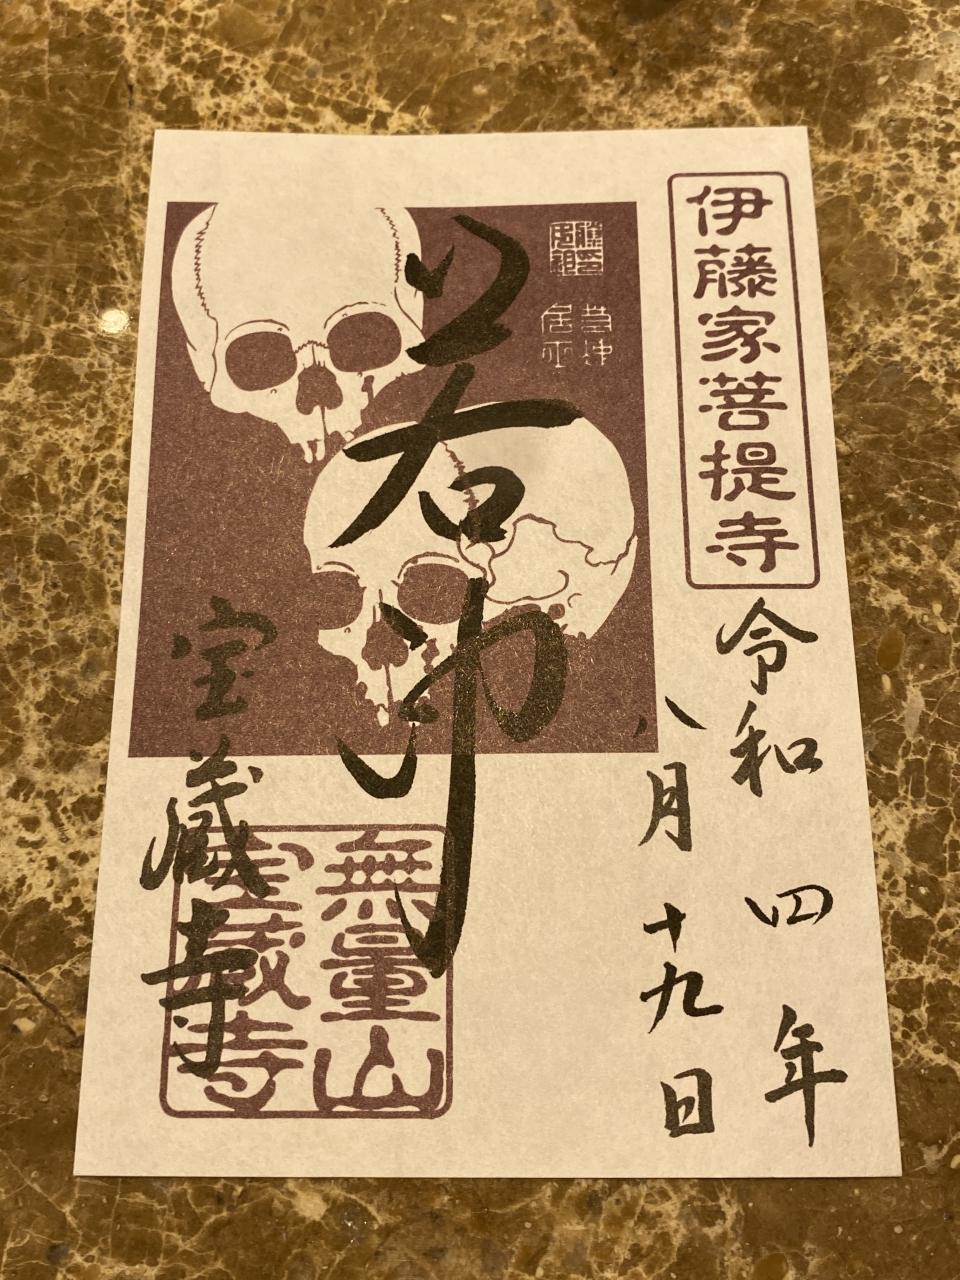 伊藤家菩提寺
令和四年
八月十九日
若冲居士
若冲
宝蔵寺
無量山
寶藏寺